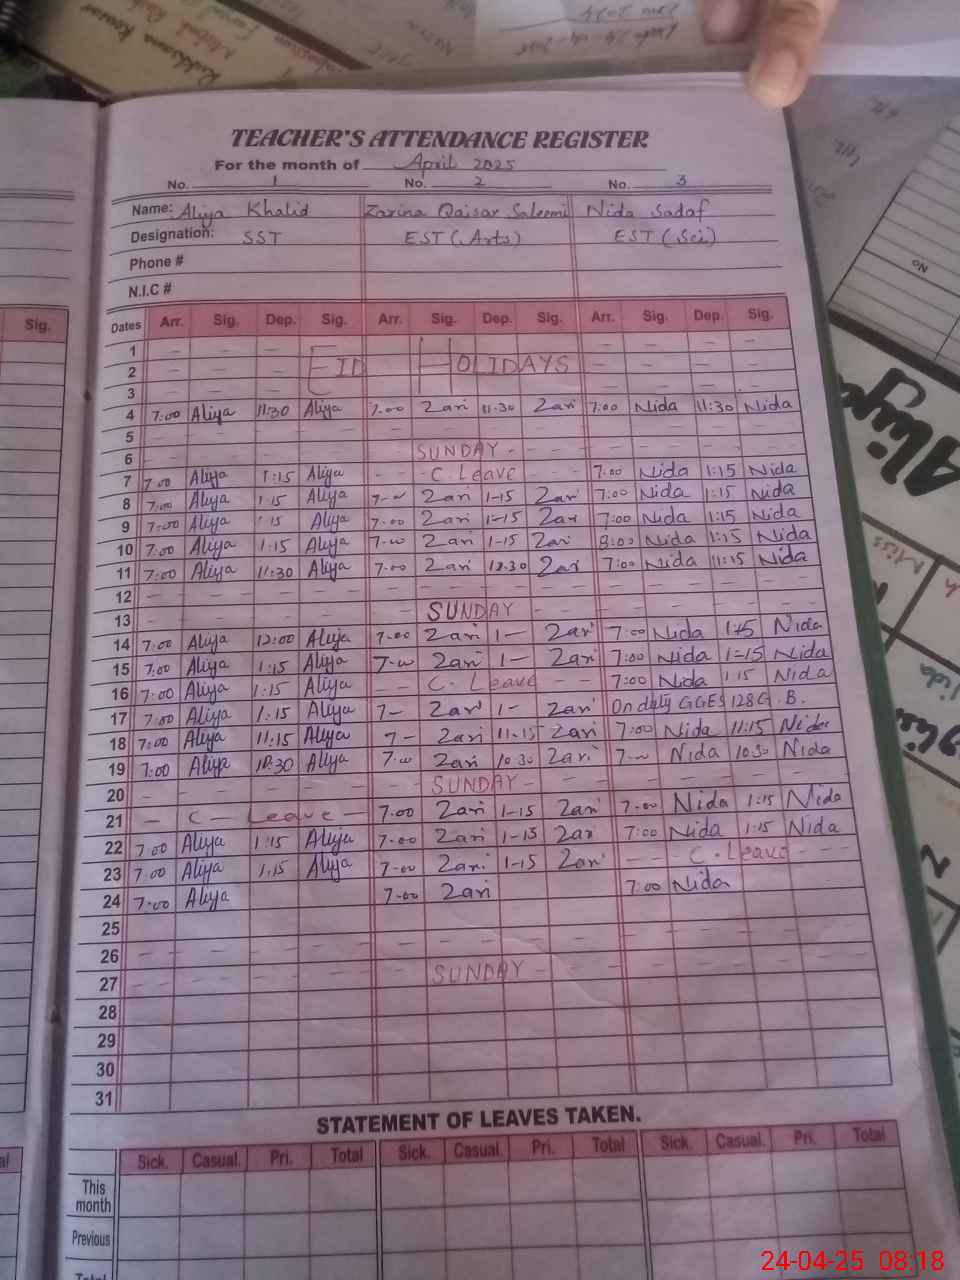 TEACHER'S ATTENDANCE REGISTER
For the month of April 2025
No. 1 No. 2 No. 3
Name: Aliya Khalid Zarina Qaisar Saleemi Nida Sadaf
Designation: SST EST (Arts) EST (Sci)
Phone #
N.I.C #
Sig. Dates Arr. Sig. Dep. Sig. Arr. Sig. Dep. Sig. Arr. Sig. Dep. Sig.
1 - - - - - - - -
2 - - - EID HOLIDAYS - - - -
3 - - - - - - - -
4 7:00 Aliya 11:30 Aliya 7-00 Zari 11-30 Zari 7:00 Nida 11:30 Nida
5 - - - - - - - - - - - -
6 - - - - SUNDAY - - - - -
7 7:00 Aliya 1:15 Aliya - - C. Leave - - - 7:00 Nida 1:15 Nida
8 7:00 Aliya 1:15 Aliya 7-00 Zari 1-15 Zari 7:00 Nida 1:15 Nida
9 7:00 Aliya 1:15 Aliya 7-00 Zari 1-15 Zari 7:00 Nida 1:15 Nida
10 7:00 Aliya 1:15 Aliya 7-00 Zari 1-15 Zari 8:00 Nida 1:15 Nida
11 7:00 Aliya 11:30 Aliya 7-00 Zari Zari 7:00 Nida 11:15 Nida
12 - - - - - - - - - - - -
13 - - - - - SUNDAY - - - - -
14 7:00 Aliya 12:00 Aliya 7-00 Zari 1- Zari 7:00 Nida 1:15 Nida
15 7:00 Aliya 1:15 Aliya 7-00 Zari 1- Zari 7:00 Nida 1-15 Nida
16 7:00 Aliya 1:15 Aliya - - C. Leave - - 7:00 Nida 1:15 Nida
17 7:00 Aliya 1:15 Aliya 7- Zari 1- Zari On duty GGES 128 G.B.
18 7:00 Aliya 11:15 Aliya 7- Zari 11-15 Zari 7:00 Nida 11:15 Nida
19 7:00 Aliya 10:30 Aliya 7-00 Zari 10 30 Zari 7-00 Nida 10 30 Nida
20 - - - - - SUNDAY - - - - -
21 - C- Leave - 7.00 Zari 1-15 Zari 7-00 Nida 1:15 Nida
22 7:00 Aliya 1:15 Aliya 7-00 Zari 1-15 Zari 7:00 Nida 1:15 Nida
23 7:00 Aliya 1.15 Aliya 7-00 Zari 1-15 Zari - - - C. Leave - -
24 7:00 Aliya 7-00 Zari 7:00 Nida
25
26 - - - - - - - - - - - -
27 - - - - - SUNDAY - - - - -
28
29
30
31
STATEMENT OF LEAVES TAKEN.
Sick. Casual. Pri. Total Sick. Casual. Pri. Total Sick. Casual. Pri. Total
This month
Previous
Total
24-04-25 08:18